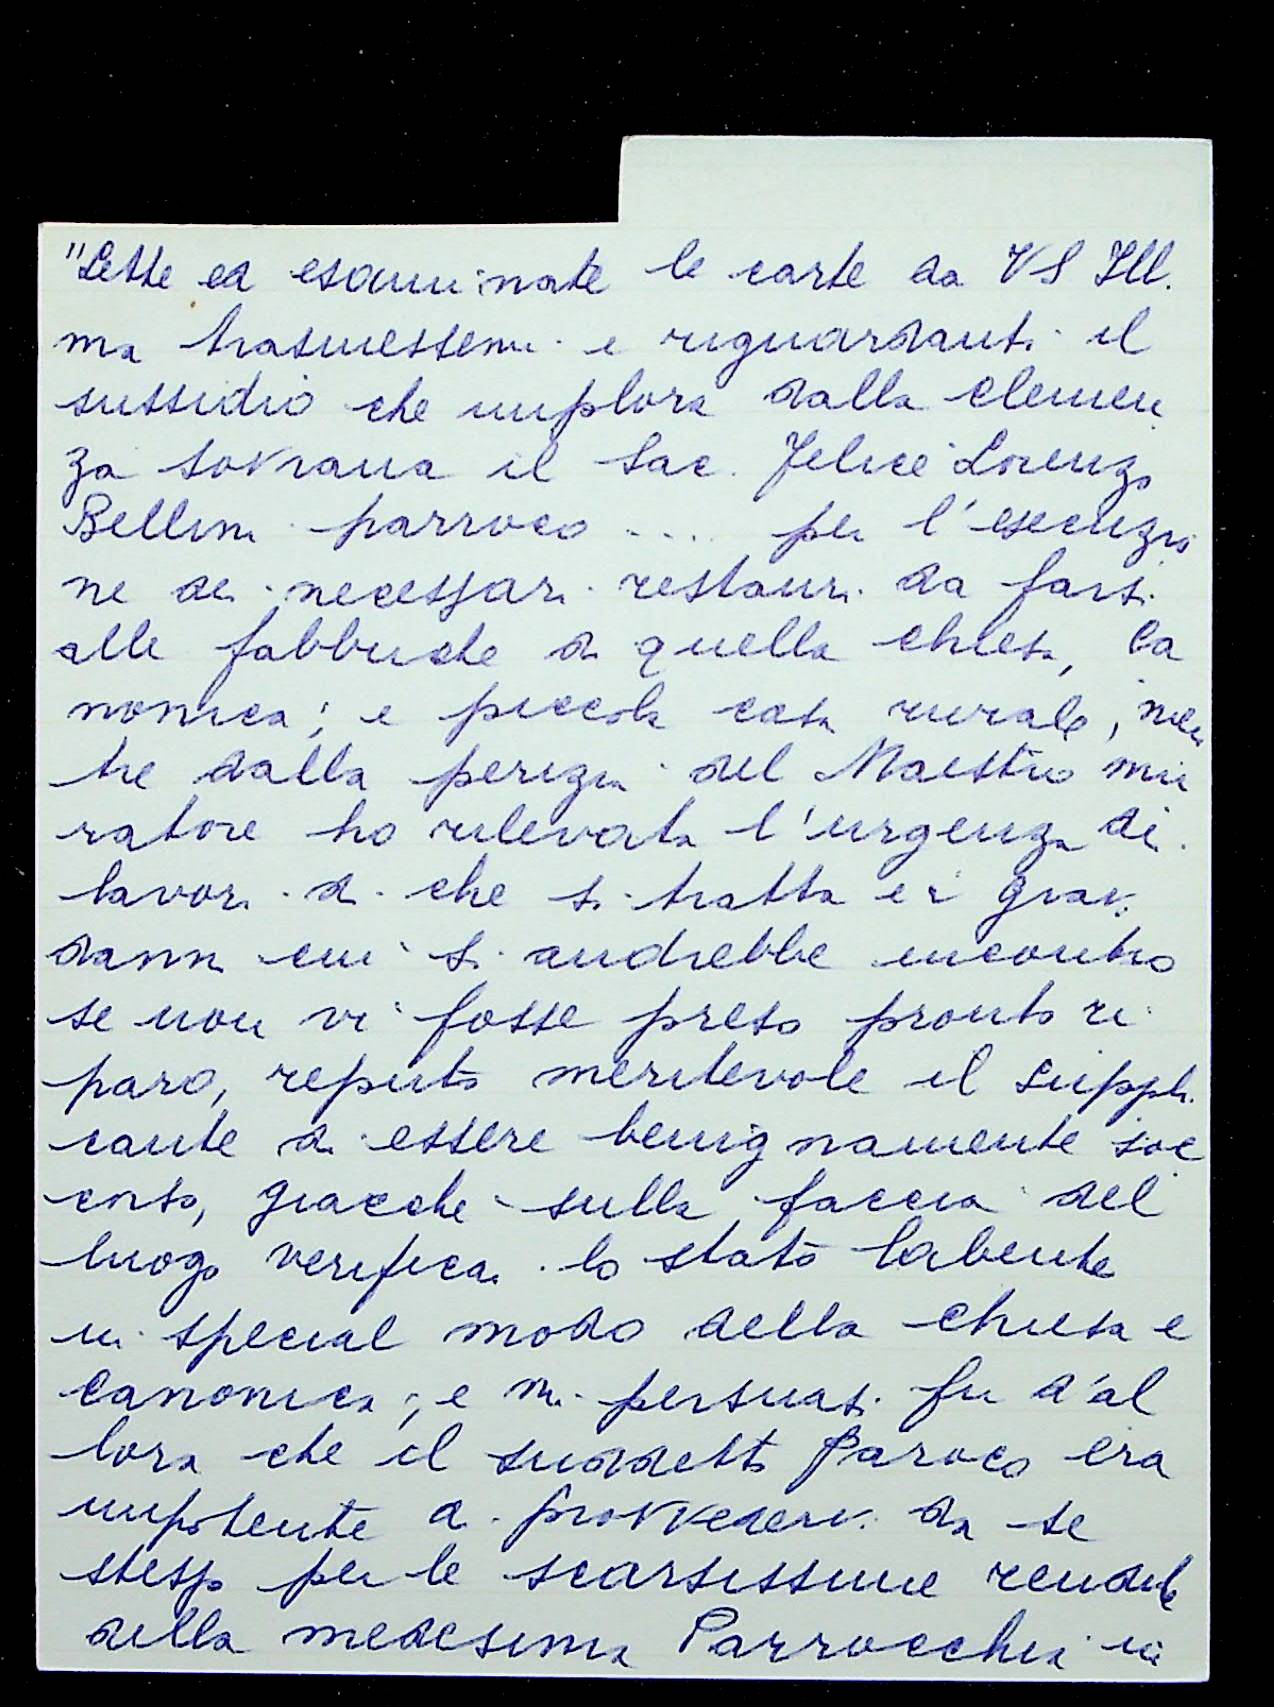 "Lette ed esaminate le carte da VS Ill.
ma trasmessemi e riguardanti il
sussidio che implora dalla clemen
za sovrana il Sac. Felice Lorenzo
Bellini parroco .... per l'esecuzio
ne dei necessari restauri da farsi
alle fabbriche di quella chiesa, Ca
nonica; e piccola casa rurale, men
tre dalla perizia del Maestro mu
ratore ho rilevata l'urgenza di
lavori di che si tratta e i gravi
danni cui si andrebbe incontro
se non vi fosse preso pronto ri
paro, reputo meritevole il suppli
cante di essere benignamente soc
corso, giacche sulla faccia del
luogo verificai lo stato labente
in special modo della chiesa e
canonica; e mi persuasi fin d'al
lora che il suddetto Paroco era
impotente a provvedervi da se
stesso per le scarsissime rendite
della medesima Parrocchia in